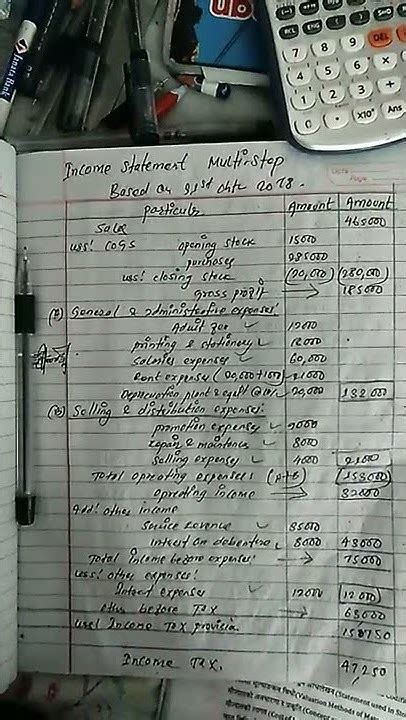 Insta Rink
7 8 9 DEL
4 5 6 ×
1 2 3 +
0 . ×10ˣ Ans
Income Statement Multi-Step
Based on 31st 2018.
Date
Page
Particular Amount Amount
Sales 465000
Less: COGS opening stock 15000
purchases 285000
Less: closing stock (20,000) (280,000)
Gross profit → 185000
(A) General & administrative expenses:
Audit fee
printing & stationery
Salaries expenses 60,000
Rent expenses (20,000+1000) 21000
Depreciation plant & 20,000 132000
(B) Selling & distribution expenses:
promotion expenses
Repair & maintence 8000
Selling expenses 4000 21000
Total operating expenses (A+B) (153000)
Operating income → 32000
Add: other income
Service revenue 35000
Interest on debenture 8000 43000
Total Income before expenses: → 75000
Less: other expenses:
Interest expenses 12000 (12000)
before Tax → 63000
Less: Income Tax provision. 15750
Income Tax. 47250
(Statement used in
(Valuation Methods of